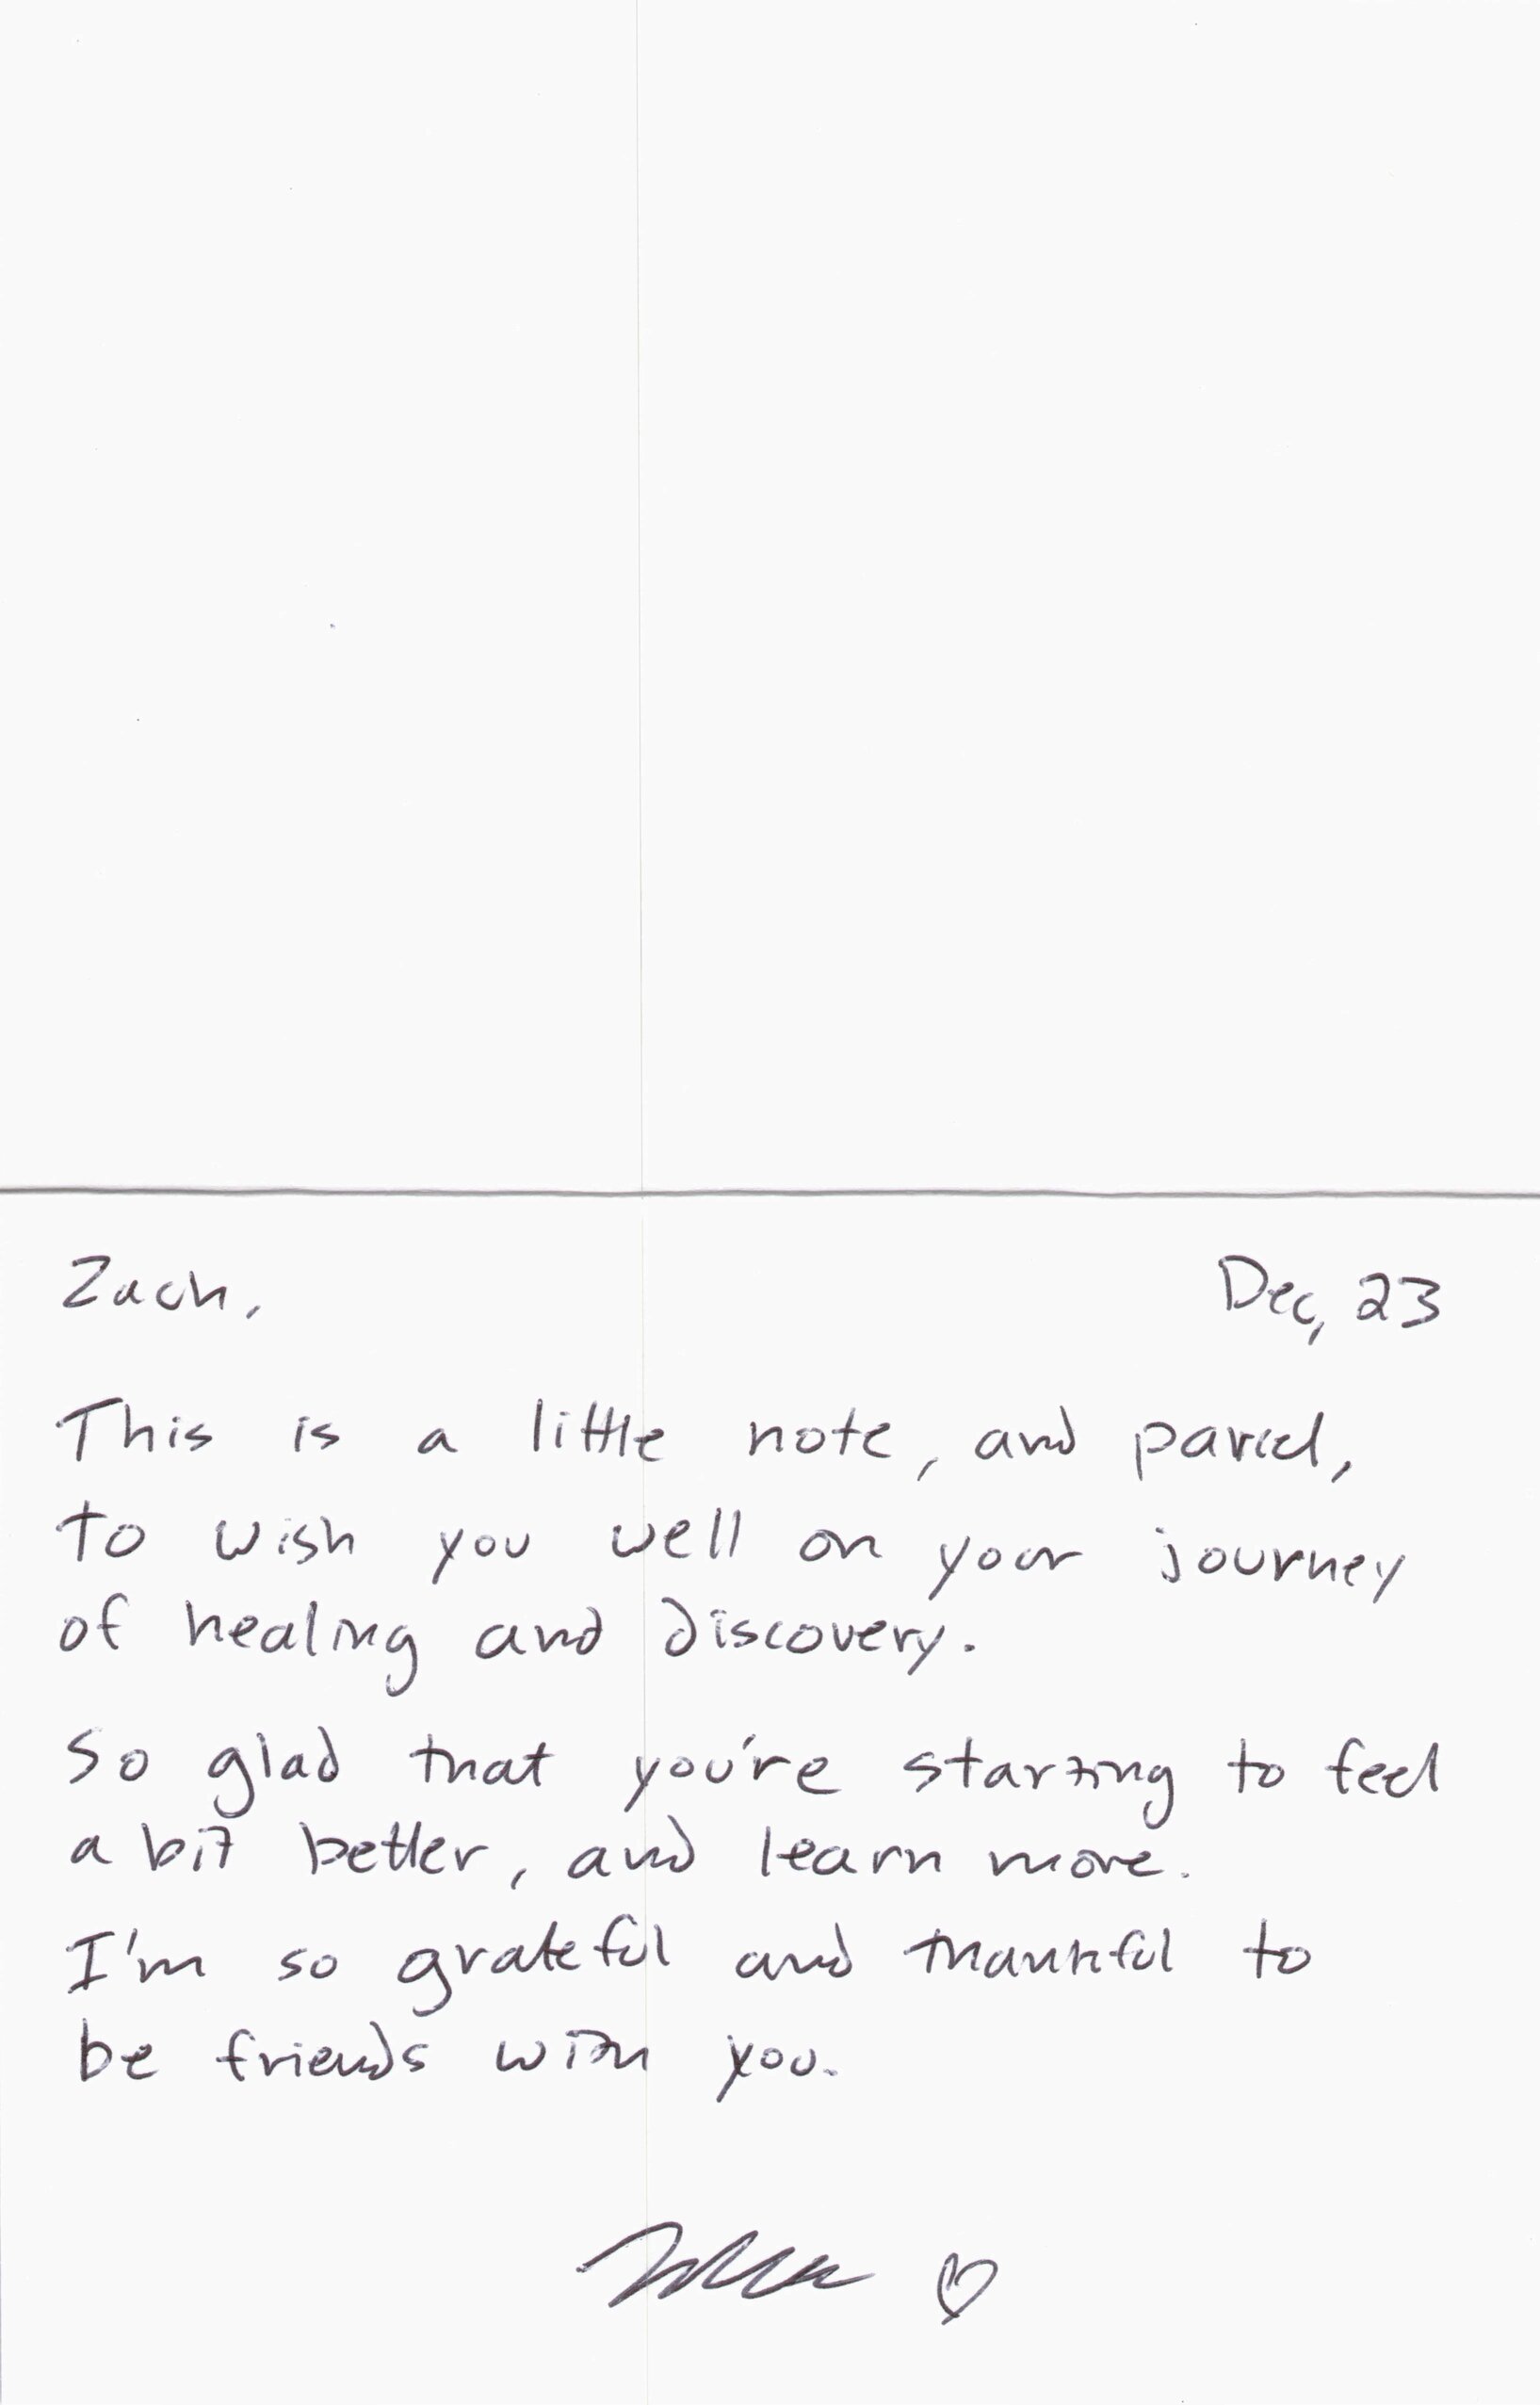 Zach,
Dec, 23
This is a little note, and parcel,
to wish you well on your journey
of healing and discovery.
So glad that you're starting to feel
a bit better, and learn more.
I'm so grateful and thankful to
be friends with you.